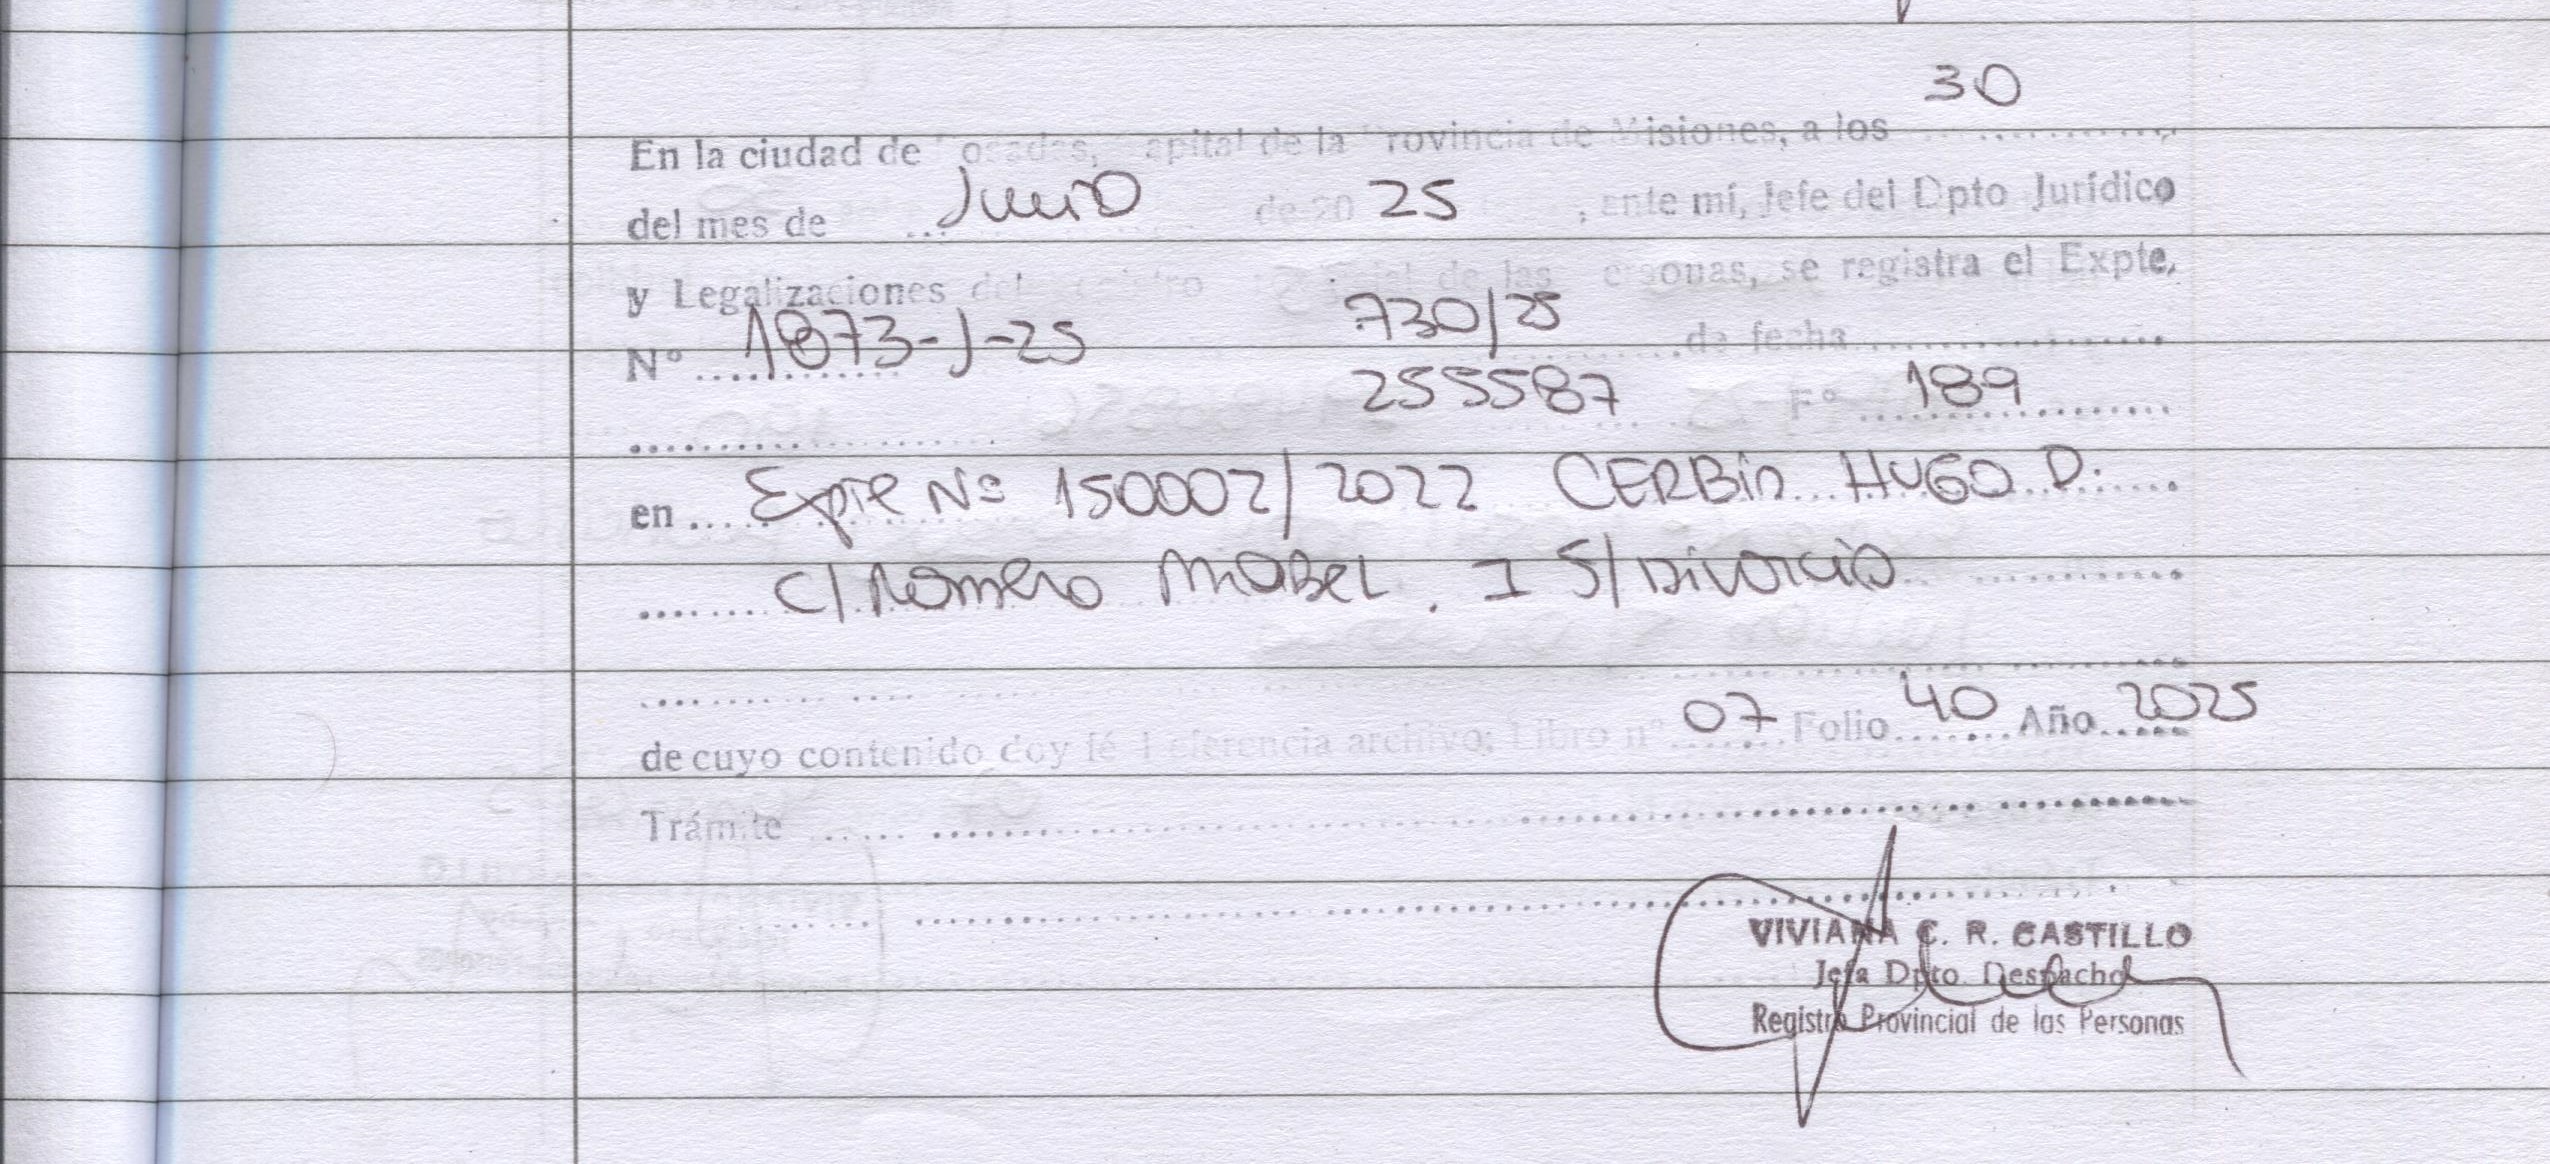 30
En la ciudad de Posadas, Capital de la Provincia de Misiones, a los
del mes de Junio de 20 25, ante mí, Jefe del Dpto Jurídico
y Legalizaciones del Registro Provincial de las Personas, se registra el Expte,
Nº 1873-J-25 730/25 de fecha
255587 Fº 189
en Expte Nº 150002/2022 CERBin HUGO D.
C/ Romero MABEL. I S/ Divorcio
de cuyo contenido doy fé Referencia archivo: Libro nº 07 Folio 40 Año 2025
Trámite
VIVIANA C. R. CASTILLO
Jefa Dpto. Despacho
Registro Provincial de las Personas